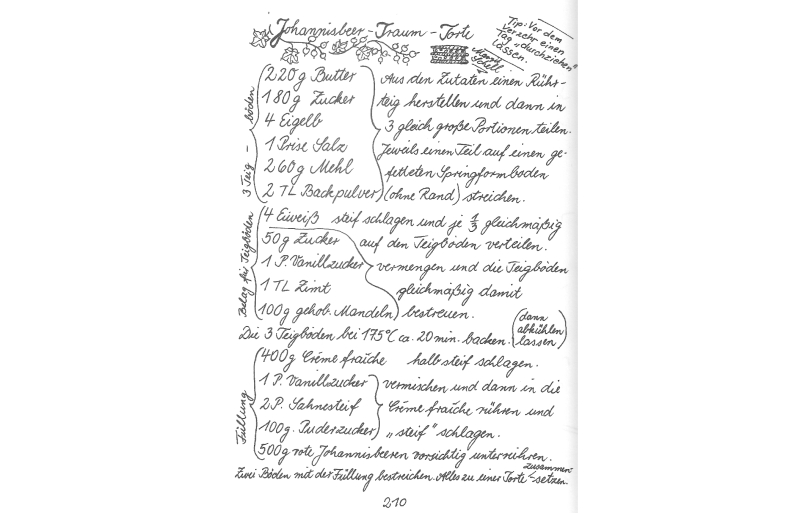 Johannisbeer-Traum-Torte
Tip: Vor dem
Verzehr einen
Tag „durchziehen"
lassen.
3 Teig-böden
220g Butter
180g Zucker
4 Eigelb
1 Prise Salz
260g Mehl
2 TL Backpulver
Aus den Zutaten einen Rühr-
teig herstellen und dann in
3 gleich große Portionen teilen.
Jeweils einen Teil auf einen ge-
fetteten Springformboden
(ohne Rand) streichen.
Belag für Teigböden
4 Eiweiß steif schlagen und je 1/3 gleichmäßig
auf den Teigböden verteilen.
50g Zucker
1 P. Vanillzucker
1 TL Zimt
100g gehob. Mandeln
vermengen und die Teigböden
gleichmäßig damit
bestreuen.
Die 3 Teigböden bei 175°C ca. 20 min. backen. (dann
abkühlen
lassen)
Füllung
400g Créme fraîche halb steif schlagen.
1 P. Vanillzucker
2 P. Sahnesteif
100g. Puderzucker
vermischen und dann in die
Créme fraîche rühren und
„steif" schlagen.
500g rote Johannisbeeren vorsichtig unterrühren.
Zwei Böden mit der Füllung bestreichen. Alles zu einer Torte zusammen-
setzen.
210